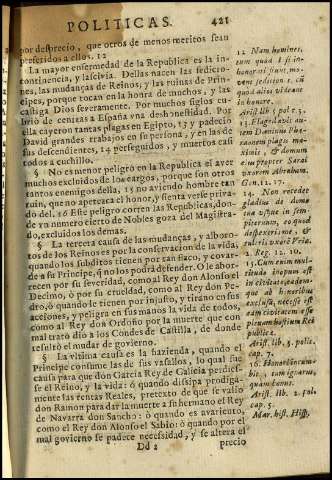 POLITICAS. 421
por desprecio, que otros de menos meritos sean
preferidos a ellos. 12
La mayor enfermedad de la Republica es la in-
continencia, y lascivia. Dellas nacen las sedicio-
nes, las mudanças de Reinos, y las ruinas de Prin-
cipes, porque tocan en la honra de muchos, y las
castiga Dios severamente. Por muchos siglos cu-
brio de cenizas a España vna deshonestidad. Por
ella cayeron tantas plagas en Egipto, 13 y padecio
David grandes trabajos en su persona, y en las de
sus descendientes, 14 perseguidos, y muertos casi
todos a cuchillo.
§ No es menor peligro en la Republica el aver
muchos excluidos de los cargos, porque son otros
tantos enemigos della, 15 no aviendo hombre tan
ruin, que no apetezca el honor, y sienta verse priva-
do del. 16 Este peligro corren las Republicas, don-
de vn numero cierto de Nobles goza del Magistra-
do, excluidos los demas.
§ La tercera causa de las mudanças, y alboro-
tos de los Reinos es por la conservacion de la vida,
quando los subditos tienen por tan flaco, y covar-
de a su Principe, q̃ no los podrà defender. O le abor-
recen por su severidad, como al Rey don Alonso el
Decimo, ò por su crueldad, como al Rey don Pe-
dro, ò quando le tienen por injusto, y tirano en sus
acciones, y peligra en sus manos la vida de todos,
como al Rey don Ordoño por la muerte que con
mal trato dio a los Condes de Castilla, de donde
resultò el mudar de govierno.
§ La vltima causa es la hazienda, quando el
Principe consume las de sus vasallos, lo qual fue
causa para que don Garcia Rey de Galicia perdies-
se el Reino, y la vida: ò quando dissipa prodiga-
mente las rentas Reales, pretexto de que se valio
don Ramon para dar la muerte a su hermano el Rey
de Navarra don Sancho: ò quando es avariento,
como el Rey don Alonso el Sabio: ò quando por el
mal govierno se padece necessidad, y se altera el
Dd 2 precio
12 Nam homines,
tum quòd
honorati sunt, mo-
vent seditionem, tũ
quòd alios vident
in honore.
Arist. lib. 5. pol. c. 3.
13 Flagellavit au-
tem Dominus Pha-
raonem plagis ma-
ximis, & domum
eius propter Sarai
vxorem Abraham.
Gen. 12. 17.
14 Non recedet
gladius de domo
tua usque in sem-
piternum, eo quod
despexeris me, &
tuleris vxorẽ Vriæ.
2. Reg. 12. 10.
15 Cum enim mul-
titudo inopum est
in civitate, eadem-
que ab honoribus
exclusa, necesse est
eam civitatem esse
plenam hostium Rei
publicæ.
Arist. lib. 3. polit.
cap. 7.
16 Honori incum-
bit, tam ignarus,
quàm bonus.
Arist. lib. 2. pol.
cap. 5.
Mar. hist. Hisp.